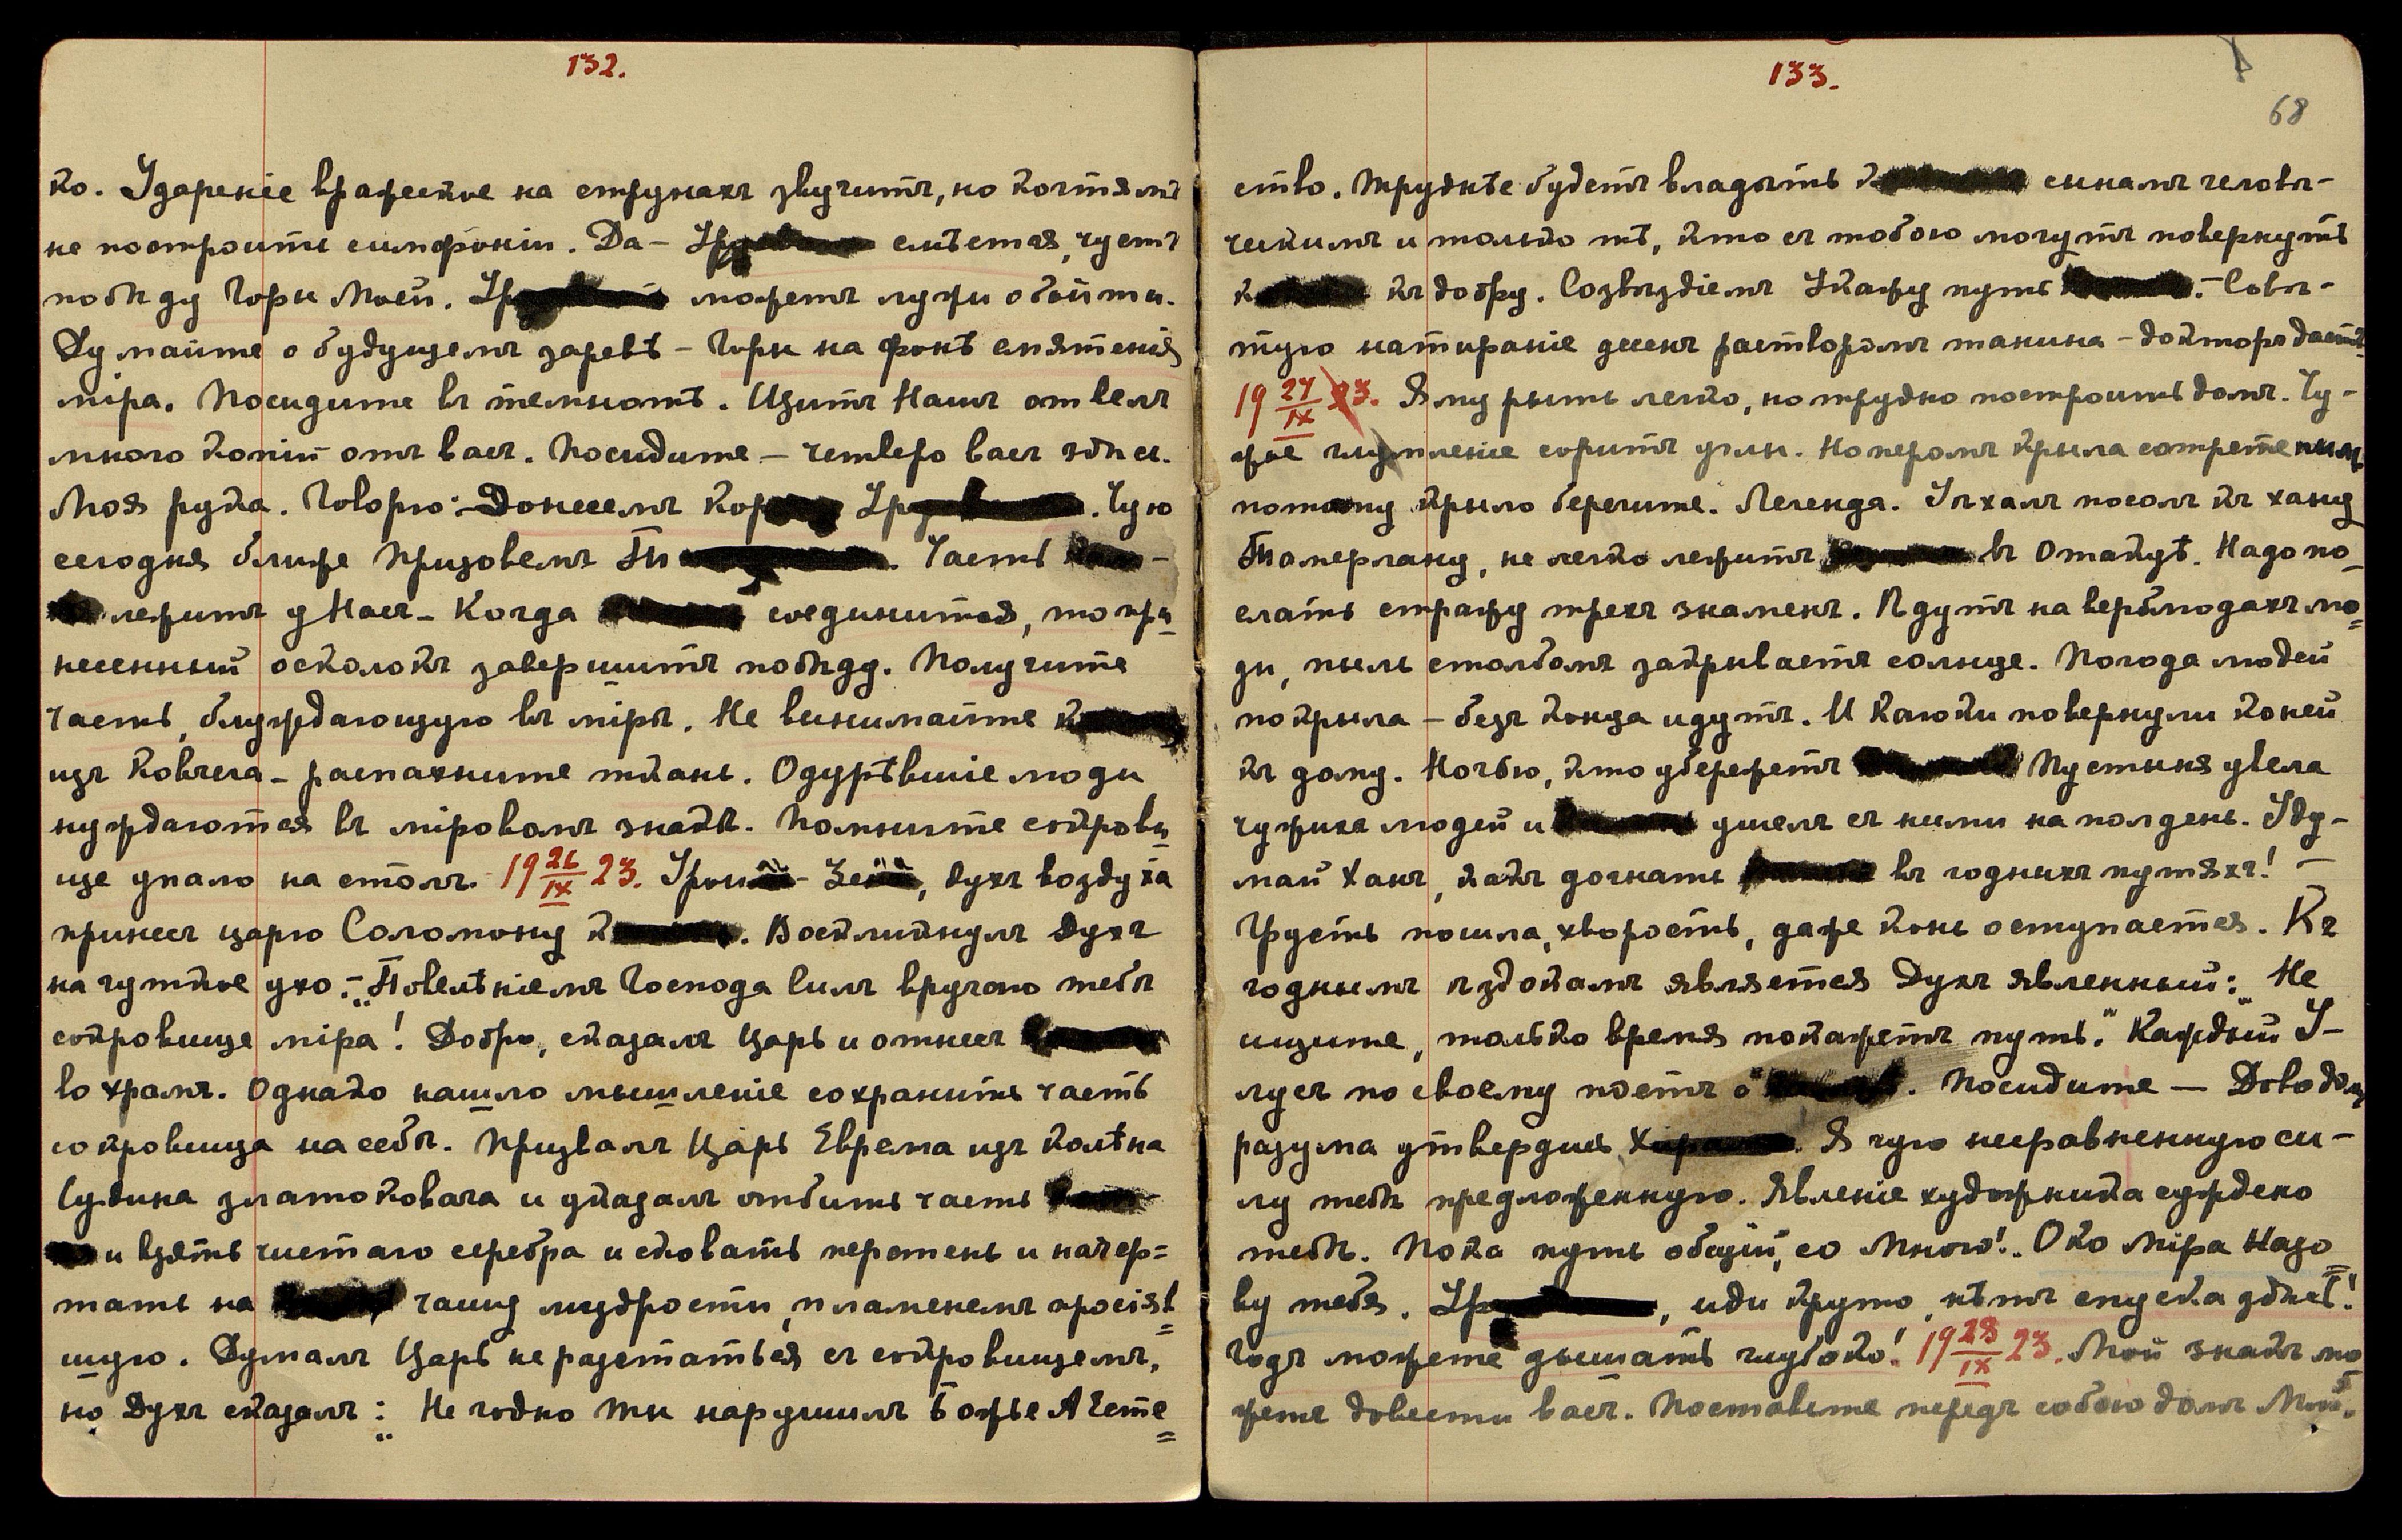 132.
ко. Ударенiе вражеское на струнахъ звучитъ, но когтямъ
не построить симфонiи. Да – Ур смѣется, чуетъ
побѣду Горы Моей. Ур можетъ лужи обойти.
Думайте о будущемъ заревѣ – Горы на фонѣ смятенiя
мiра. Посидите въ темнотѣ. Щитъ Нашъ отвелъ
много копiй отъ васъ. Посидите – четверо васъ здѣсь.
Моя рука. Говорю: – Донесемъ Кор Ур. Чую
сегодня ближе Призовемъ. Часть –
лежитъ у Насъ – Когда соединится, то при
несенный осколокъ завершитъ побѣду. Получите
часть, блуждающую въ мiрѣ. Не вынимайте к
изъ ковчега – распахните ткань. Одурѣвшiе люди
нуждаются въ мiровомъ знакѣ. Помните сокрови
ще упало на столъ. 19 26/IX 23. Урои – Зе, духъ воздуха
принесъ царю Соломону к. Воскликнулъ Духъ
на чуткое ухо: – „Повелѣнiемъ Господа Силъ вручаю тебѣ
сокровище мiра! Добро, сказалъ Царь и отнесъ
во храмъ. Однако нашло мышленiе сохранить часть
сокровища на себѣ. Призвалъ Царь Ефрема изъ колѣна
Iудина златоковача и указалъ отбить часть
и взять чистаго серебра и сковать перстень и начер=
тать на чашу мудрости, пламенемъ просiяв
шую. Думалъ Царь не разстаться съ сокровищемъ,
но Духъ сказалъ: „Не годно ты нарушилъ Божье А Чете
133.
68
ство. Труднѣе будетъ владѣть К сынамъ человѣ–
ческимъ и только тѣ, кто съ тобою могутъ повернуть
к къ добру. Созвѣздiемъ Укажу путь. – Совѣ–
тую натиранiе десенъ растворомъ танина – докторъ дастъ.
19 27/IX 23. Яму рыть легко, но трудно построить домъ. Чу–
жое глумленiе соритъ углы. Но перомъ крыла сотрете пыль
потому крыло берегите. Легенда. Уѣхалъ посолъ къ хану
Тамерлану, не легко лежитъ въ Отакуѣ. Надо по–
слать стражу трехъ знаменъ. Ѣдутъ на верблюдахъ лю
ди, пыль столбомъ закрываетъ солнце. Погода людей
покрыла – безъ конца идутъ. И Каюки повернули коней
къ дому. Ночью, кто убережетъ Пустыня увела
чужихъ людей и ушелъ съ ними на полдень. Уду–
май Ханъ, какъ догнать въ годныхъ путяхъ! –
Грусть пошла, хворость, даже конь оступается. Къ
годнымъ ѣздокамъ является Духъ явленный: „Не
ищите, только время покажетъ путь.” Каждый У–
лусъ по своему поетъ о. Посидите — Доводомъ
разума утвердись Х. Я чую несравненную си–
лу тебѣ предложенную. Явленiе художника суждено
тебѣ. Пока путь общiй, со Мною!.. Око Мiра Назо
ву тебя. Ур, иди круто, нѣтъ спуска здѣсь!
Годъ можете дышать глубоко! 19 28/IX 23. Мой знакъ мо
жетъ довести васъ. Поставьте передъ собою домъ Мой.